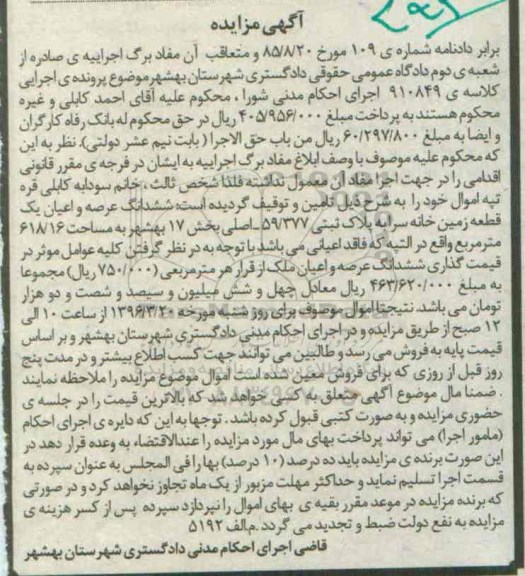 آگهی مزایده
برابر دادنامه شماره ی ۱۰۹ مورخ ۸۵/۸/۲۰ و متعاقب آن مفاد برگ اجراییه ی صادره از
شعبه ی دوم دادگاه عمومی حقوقی دادگستری شهرستان بهشهر موضوع پرونده ی اجرایی
کلاسه ی ۹۱۰۸۴۹ اجرای احکام مدنی شورا ، محکوم علیه آقای احمد کابلی و غیره
محکوم هستند به پرداخت مبلغ ۴۰۵/۹۵۶/۰۰۰ ریال در حق محکوم له بانک رفاه کارگران
و ایضا به مبلغ ۶۰/۲۹۷/۸۰۰ ریال من باب حق الاجرا ( بابت نیم عشر دولتی). نظر به این
که محکوم علیه موصوف با وصف ابلاغ مفاد برگ اجراییه به ایشان در فرجه ی مقرر قانونی
اقدامی را در جهت اجرا مفاد آن معمول نداشته فلذا شخص ثالث ، خانم سودابه کابلی قره
تپه اموال خود را به شرح ذیل تامین و توقیف گردیده است: ششدانگ عرصه و اعیان یک
قطعه زمین خانه سرابه پلاک ثبتی ۵۹/۳۷۷ اصلی بخش ۱۷ بهشهر به مساحت ۶۱۸/۱۶
مترمربع واقع در التپه که فاقد اعیانی می باشد با توجه به در نظر گرفتن کلیه عوامل موثر در
قیمت گذاری ششدانگ عرصه و اعیان ملک از قرار هر مترمربعی (۷۵۰/۰۰۰ ریال) مجموعا
به مبلغ ۴۶۳/۶۲۰/۰۰۰ ریال معادل چهل و شش میلیون و سیصد و شصت و دو هزار
تومان می باشد. نتیجتا اموال موصوف برای روز شنبه مورخه ۱۳۹۶/۳/۲۰ از ساعت ۱۰ الی
۱۲ صبح از طریق مزایده و در اجرای احکام مدنی دادگستری شهرستان بهشهر و بر اساس
قیمت پایه به فروش می رسد و طالبین می توانند جهت کسب اطلاع بیشتر و در مدت پنج
روز قبل از روزی که برای فروش معین شده است اموال موضوع مزایده را ملاحظه نمایند
. ضمنا مال موضوع آگهی متعلق به کسی خواهد شد که بالاترین قیمت را در جلسه ی
حضوری مزایده و به صورت کتبی قبول کرده باشد . توجها به این که دایره ی اجرای احکام
(مامور اجرا) می تواند پرداخت بهای مال مورد مزایده را عندالاقتضاء به وعده قرار دهد در
این صورت برنده ی مزایده باید ده درصد (۱۰ درصد) بها را فی المجلس به عنوان سپرده به
قسمت اجرا تسلیم نماید و حداکثر مهلت مزبور از یک ماه تجاوز نخواهد کرد و در صورتی
که برنده مزایده در موعد مقرر بقیه ی بهای اموال را نپردازد سپرده پس از کسر هزینه ی
مزایده به نفع دولت ضبط و تجدید می گردد .م.الف ۵۱۹۲
قاضی اجرای احکام مدنی دادگستری شهرستان بهشهر